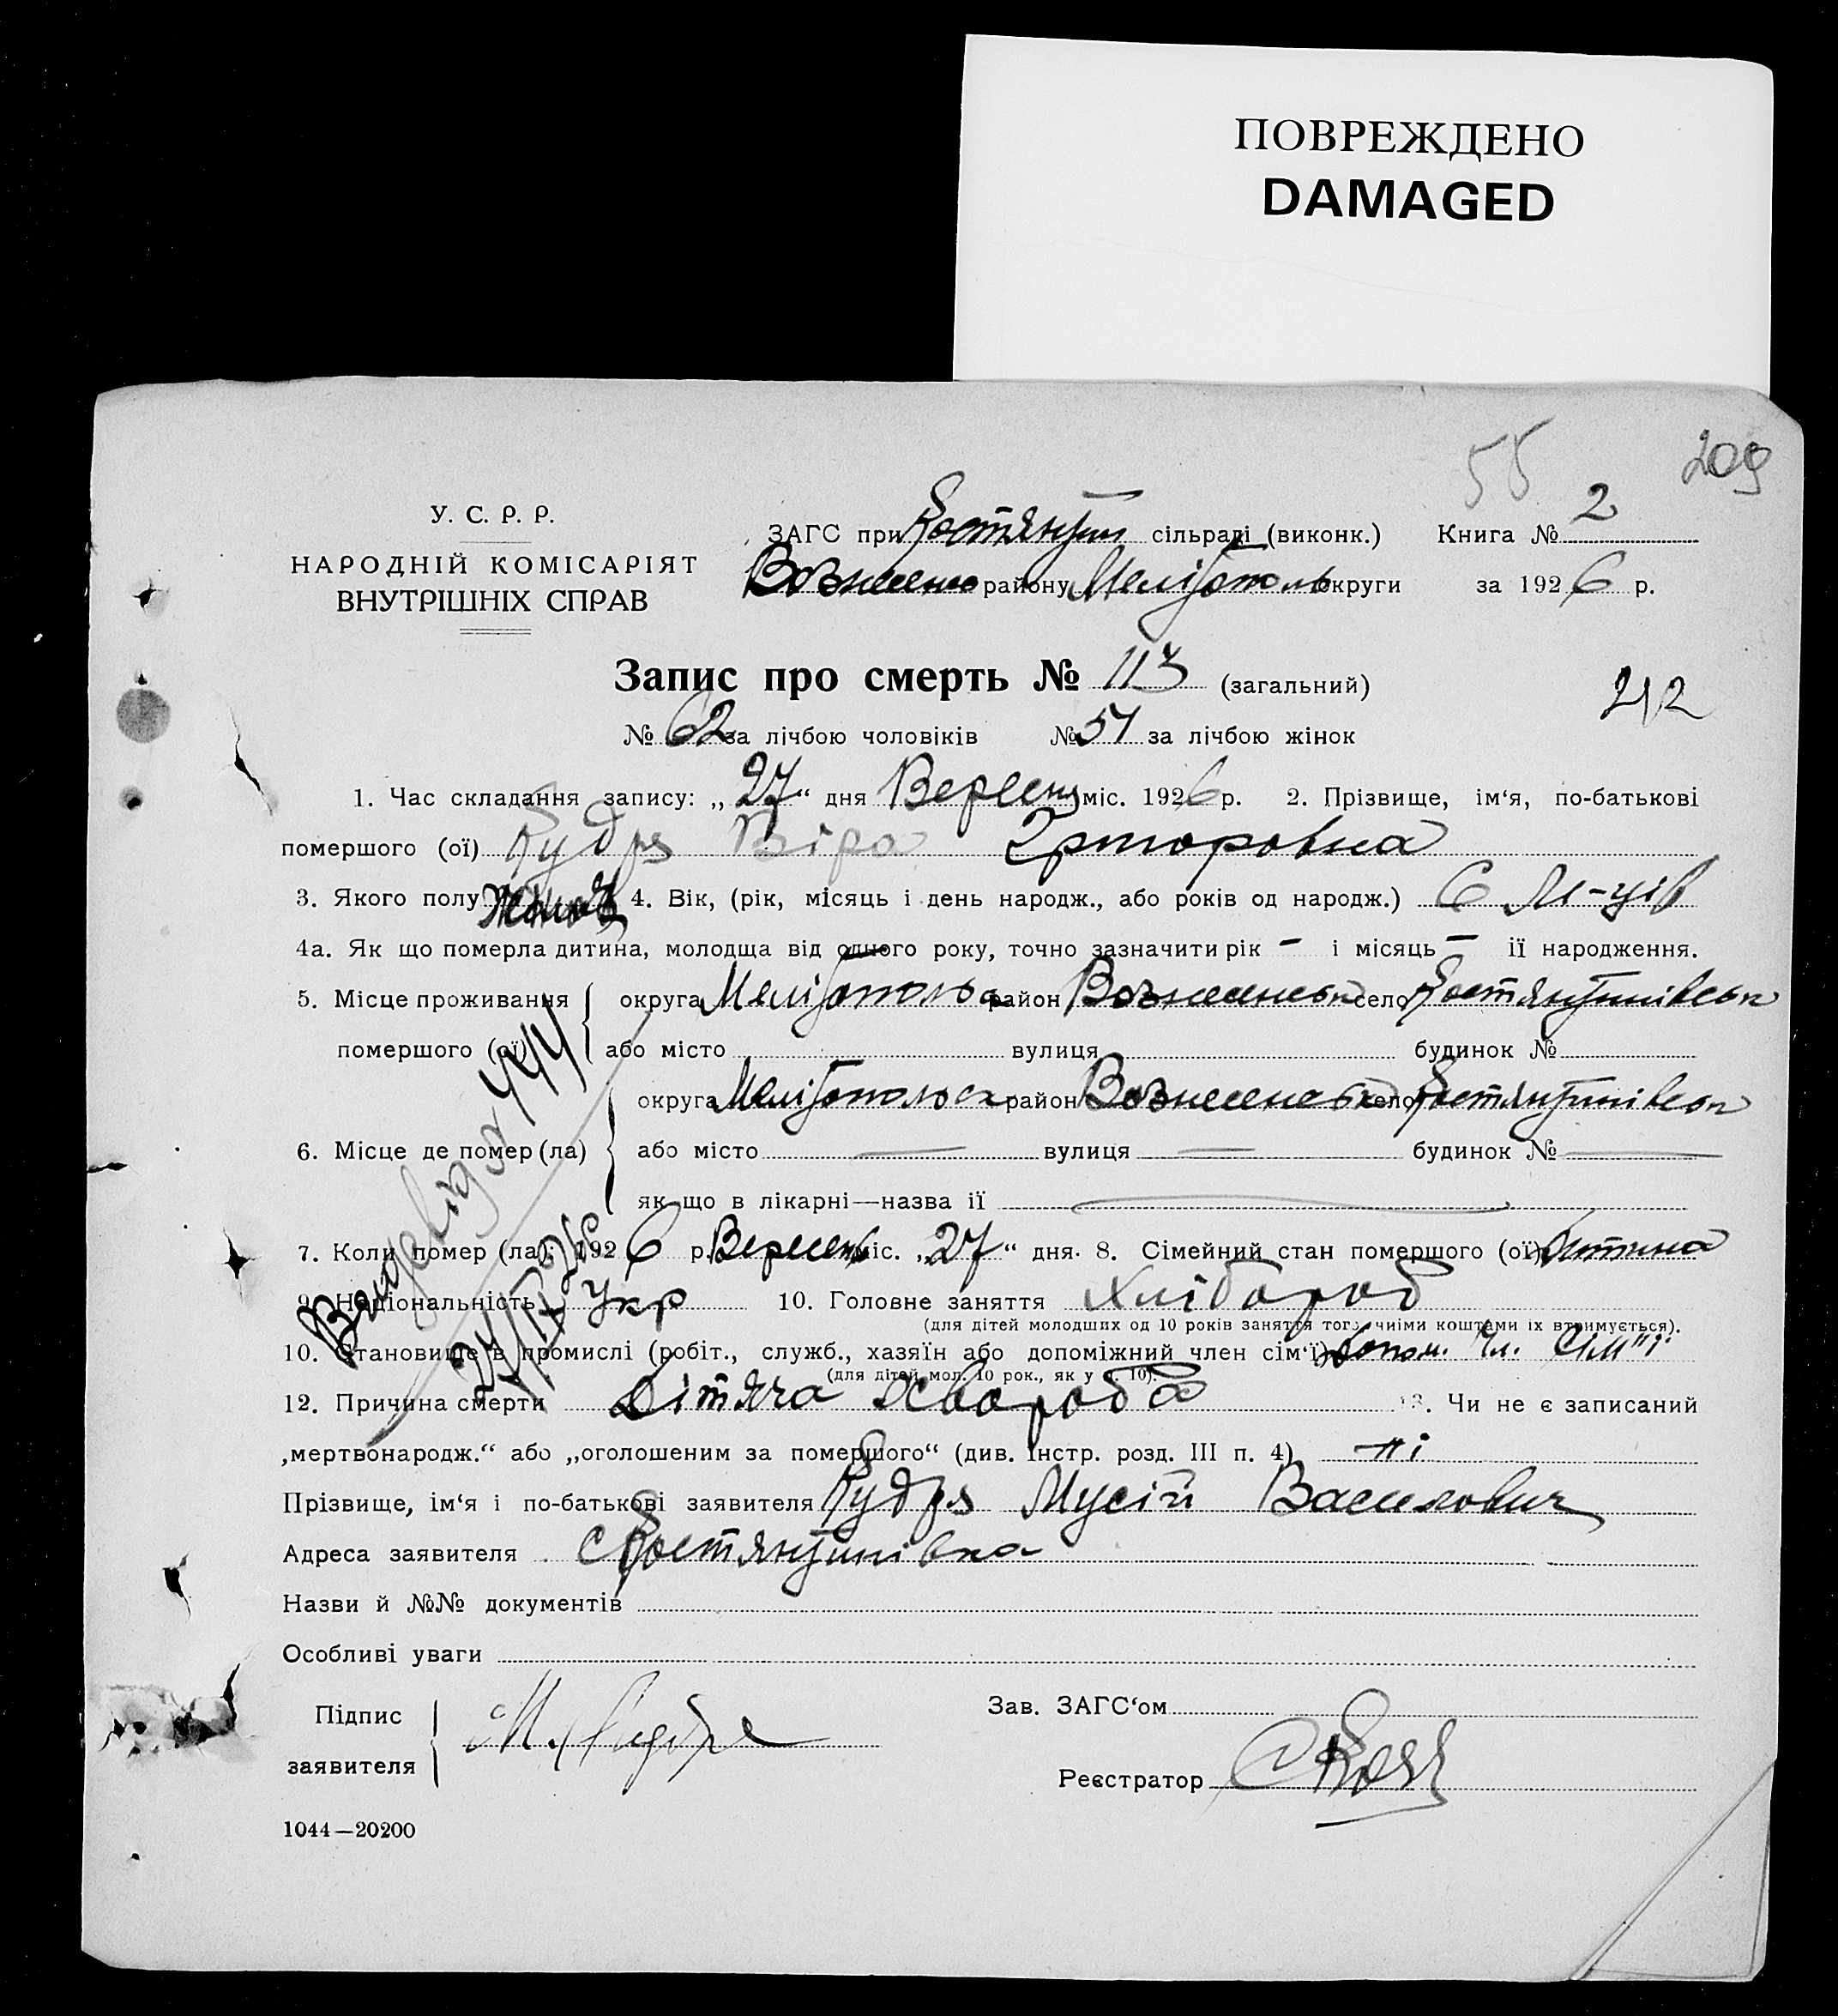 ПОВРЕЖДЕНО
DAMAGED
55 209
У. С. Р. Р.
НАРОДНІЙ КОМІСАРІЯТ
ВНУТРІШНІХ СПРАВ
ЗАГС при Костянтин сільраді (виконк.) Книга № 2
Вознесенс району Мелітополь округи за 1926 р.
Запис про смерть № 113 (загальний)
212
№ 62 за лічбою чоловіків № 51 за лічбою жінок
1. Час складання запису: „27“ дня Вересня міс. 1926 р. 2. Прізвище, ім‘я, по-батькові
помершого (ої) Кудря Віра
3. Якого полу 4. Вік, (рік, місяць і день народж., або років од народж.) 6 М-ців
4а. Як що померла дитина, молодща від одного року, точно зазначити рік – і місяць – її народження.
5. Місце проживання помершого (ої) округа Мелітопольс район Вознесенськ село Костянтинівськ
або місто вулиця будинок №
6. Місце де помер (ла) округа Мелітопольск район Вознесенськ село Костянтинівськ
або місто — вулиця — будинок № —
як що в лікарні—назва її —
7. Коли помер (ла): 1926 р. Вересень міс. „27“ дня. 8. Сімейний стан помершого (ої) Дитина
9. Національність Укр 10. Головне заняття Хлібороб
(для дітей молодших од 10 років заняття того, чиїми коштами їх втримується).
10. Становище в промислі (робіт., служб., хазяїн або допоміжний член сім‘ї) Допом. Чл. Сім"ї
(для дітей мол. 10 рок., як у п. 10).
12. Причина смерти Дітяча хвороба 13. Чи не є записаний
„мертвонародж.“ або „оголошеним за помершого“ (див. Інстр. розд. III п. 4) ні
Прізвище, ім‘я і по-батькові заявителя Кудря Мусій Василович
Адреса заявителя с Костянтинівка
Назви й №№ документів
Особливі уваги
Підпис заявителя М. Кудря
Зав. ЗАГС‘ом
Реєстратор
1044—20200